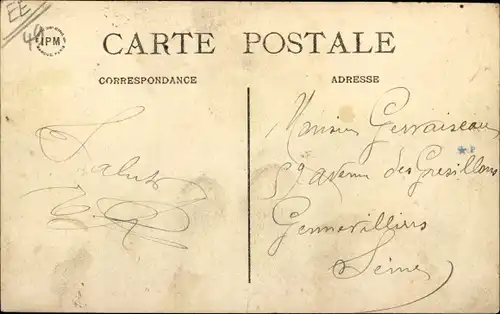 EE
49
IPM
CARTE POSTALE
CORRESPONDANCE
ADRESSE
Saluts
Monsieur Gervaiseau
59 avenue des Gresillons
Gennevilliers
Seine